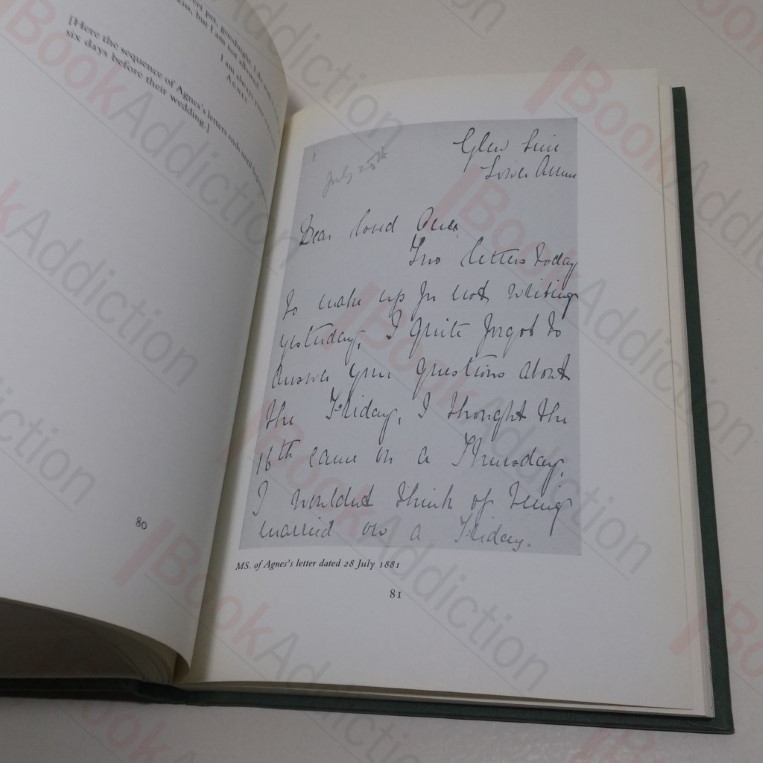 but I am
I am
[Here the sequence of Agnes's letters ends
six days before their wedding.]
80
July 28th
Dear loved
Two letters today
to make up for not writing
yesterday, I quite forgot to
answer your questions about
the Friday, I thought the
16th came on a Thursday,
I wouldn't think of being
married on a Friday.
MS. of Agnes's letter dated 28 July 1881
81
BookAddiction